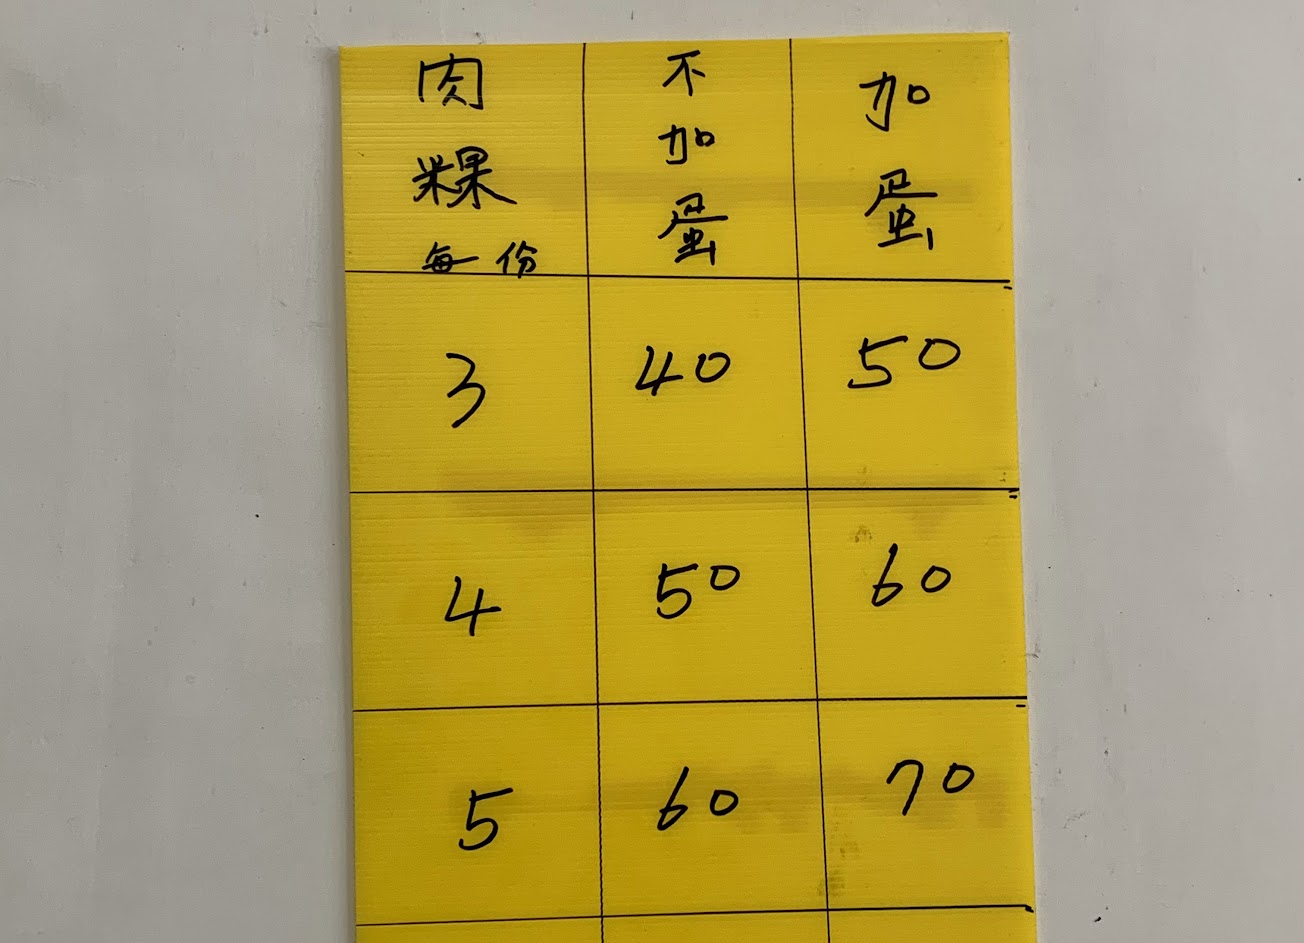 肉粿每份 不加蛋 加蛋
3 40 50
4 50 60
5 60 70